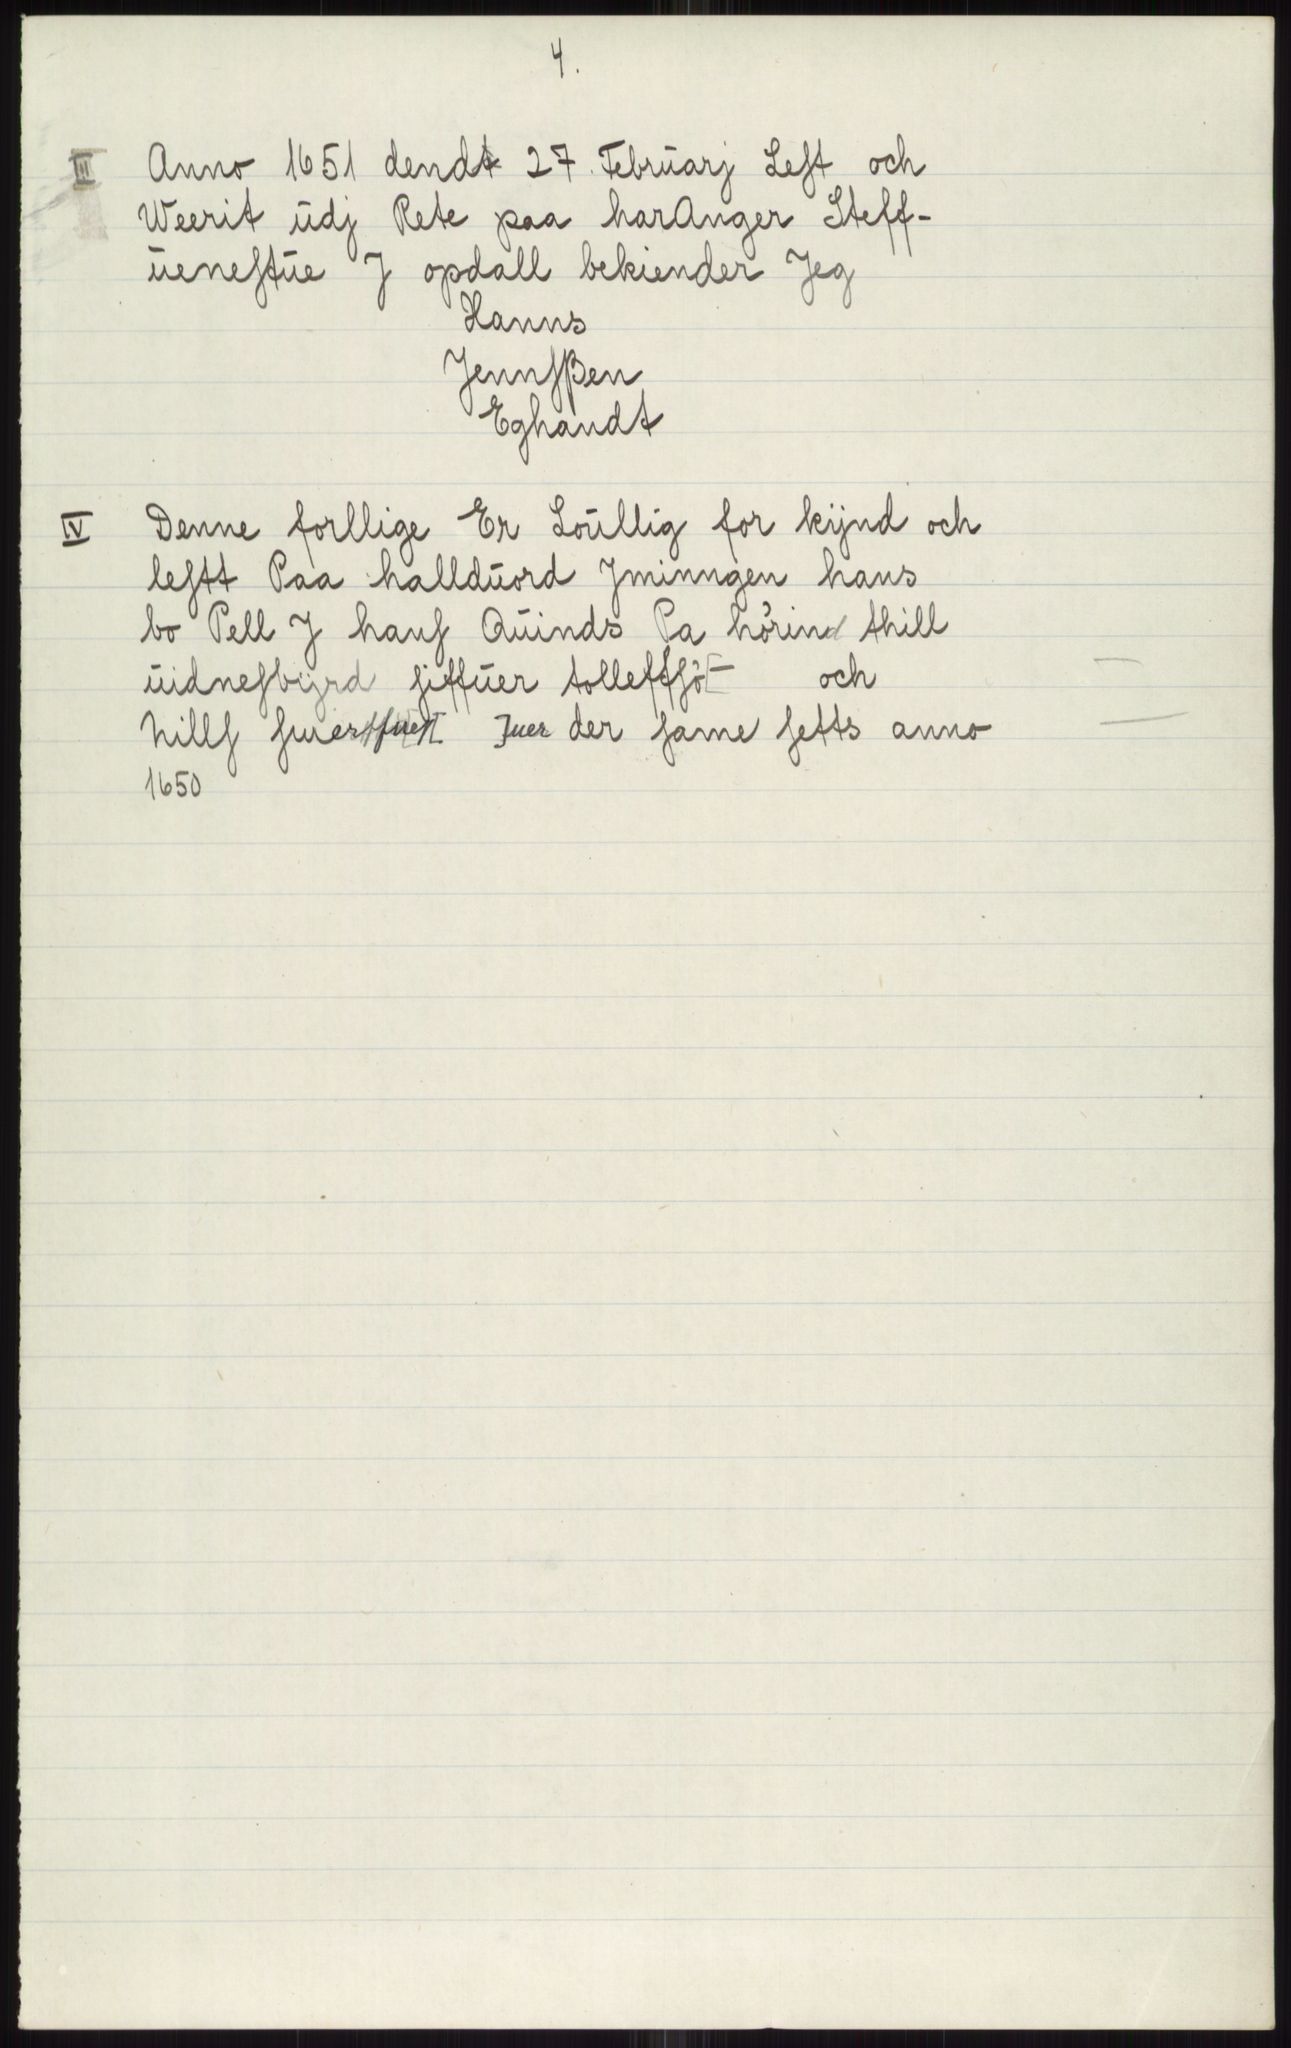 4.
III Anno 1651 dendt 27. Februarj Lest och
Weerit udj Rete paa harAnger Steff-
uenestue J opdall bekiender Jeg
Hanns
Jennsßen
Eghandt
IV Denne forllige Er Loullig for kynd och
lestt Paa hallduord Jminngen hans
bo Pell J hans Quinds Pa hörind thill
uidnesbyrd siffuer tollefssö- och
Nills der same setts anno
1650